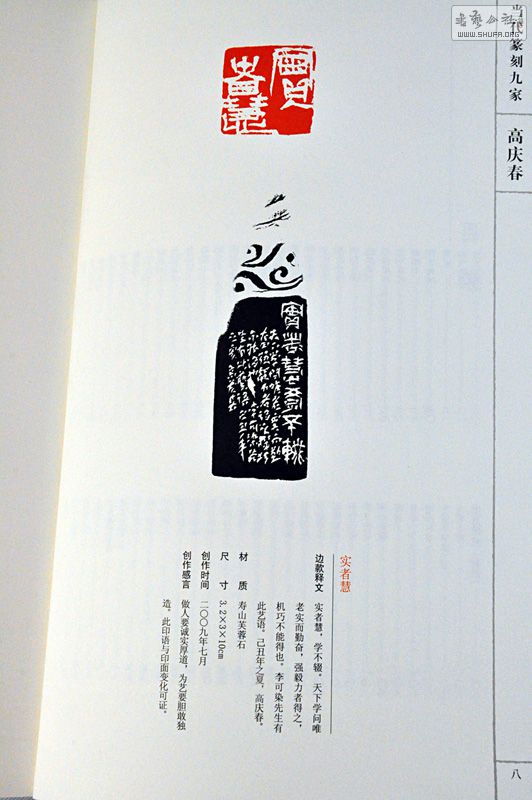 书艺公社
WWW.SHUFA.ORG
当代篆刻九家
高庆春
实者慧
实者慧
边款释文 实者慧,学不辍。天下学问唯
老实而勤奋,强毅力者得之,
机巧不能得也。李可染先生有
此艺语。己丑年之夏,高庆春。
材质 寿山芙蓉石
尺寸 3.2×3×10cm
创作时间 二〇〇九年七月
创作感言 做人要诚实厚道,为艺要胆敢独
造。此印语与印面变化可证。
八